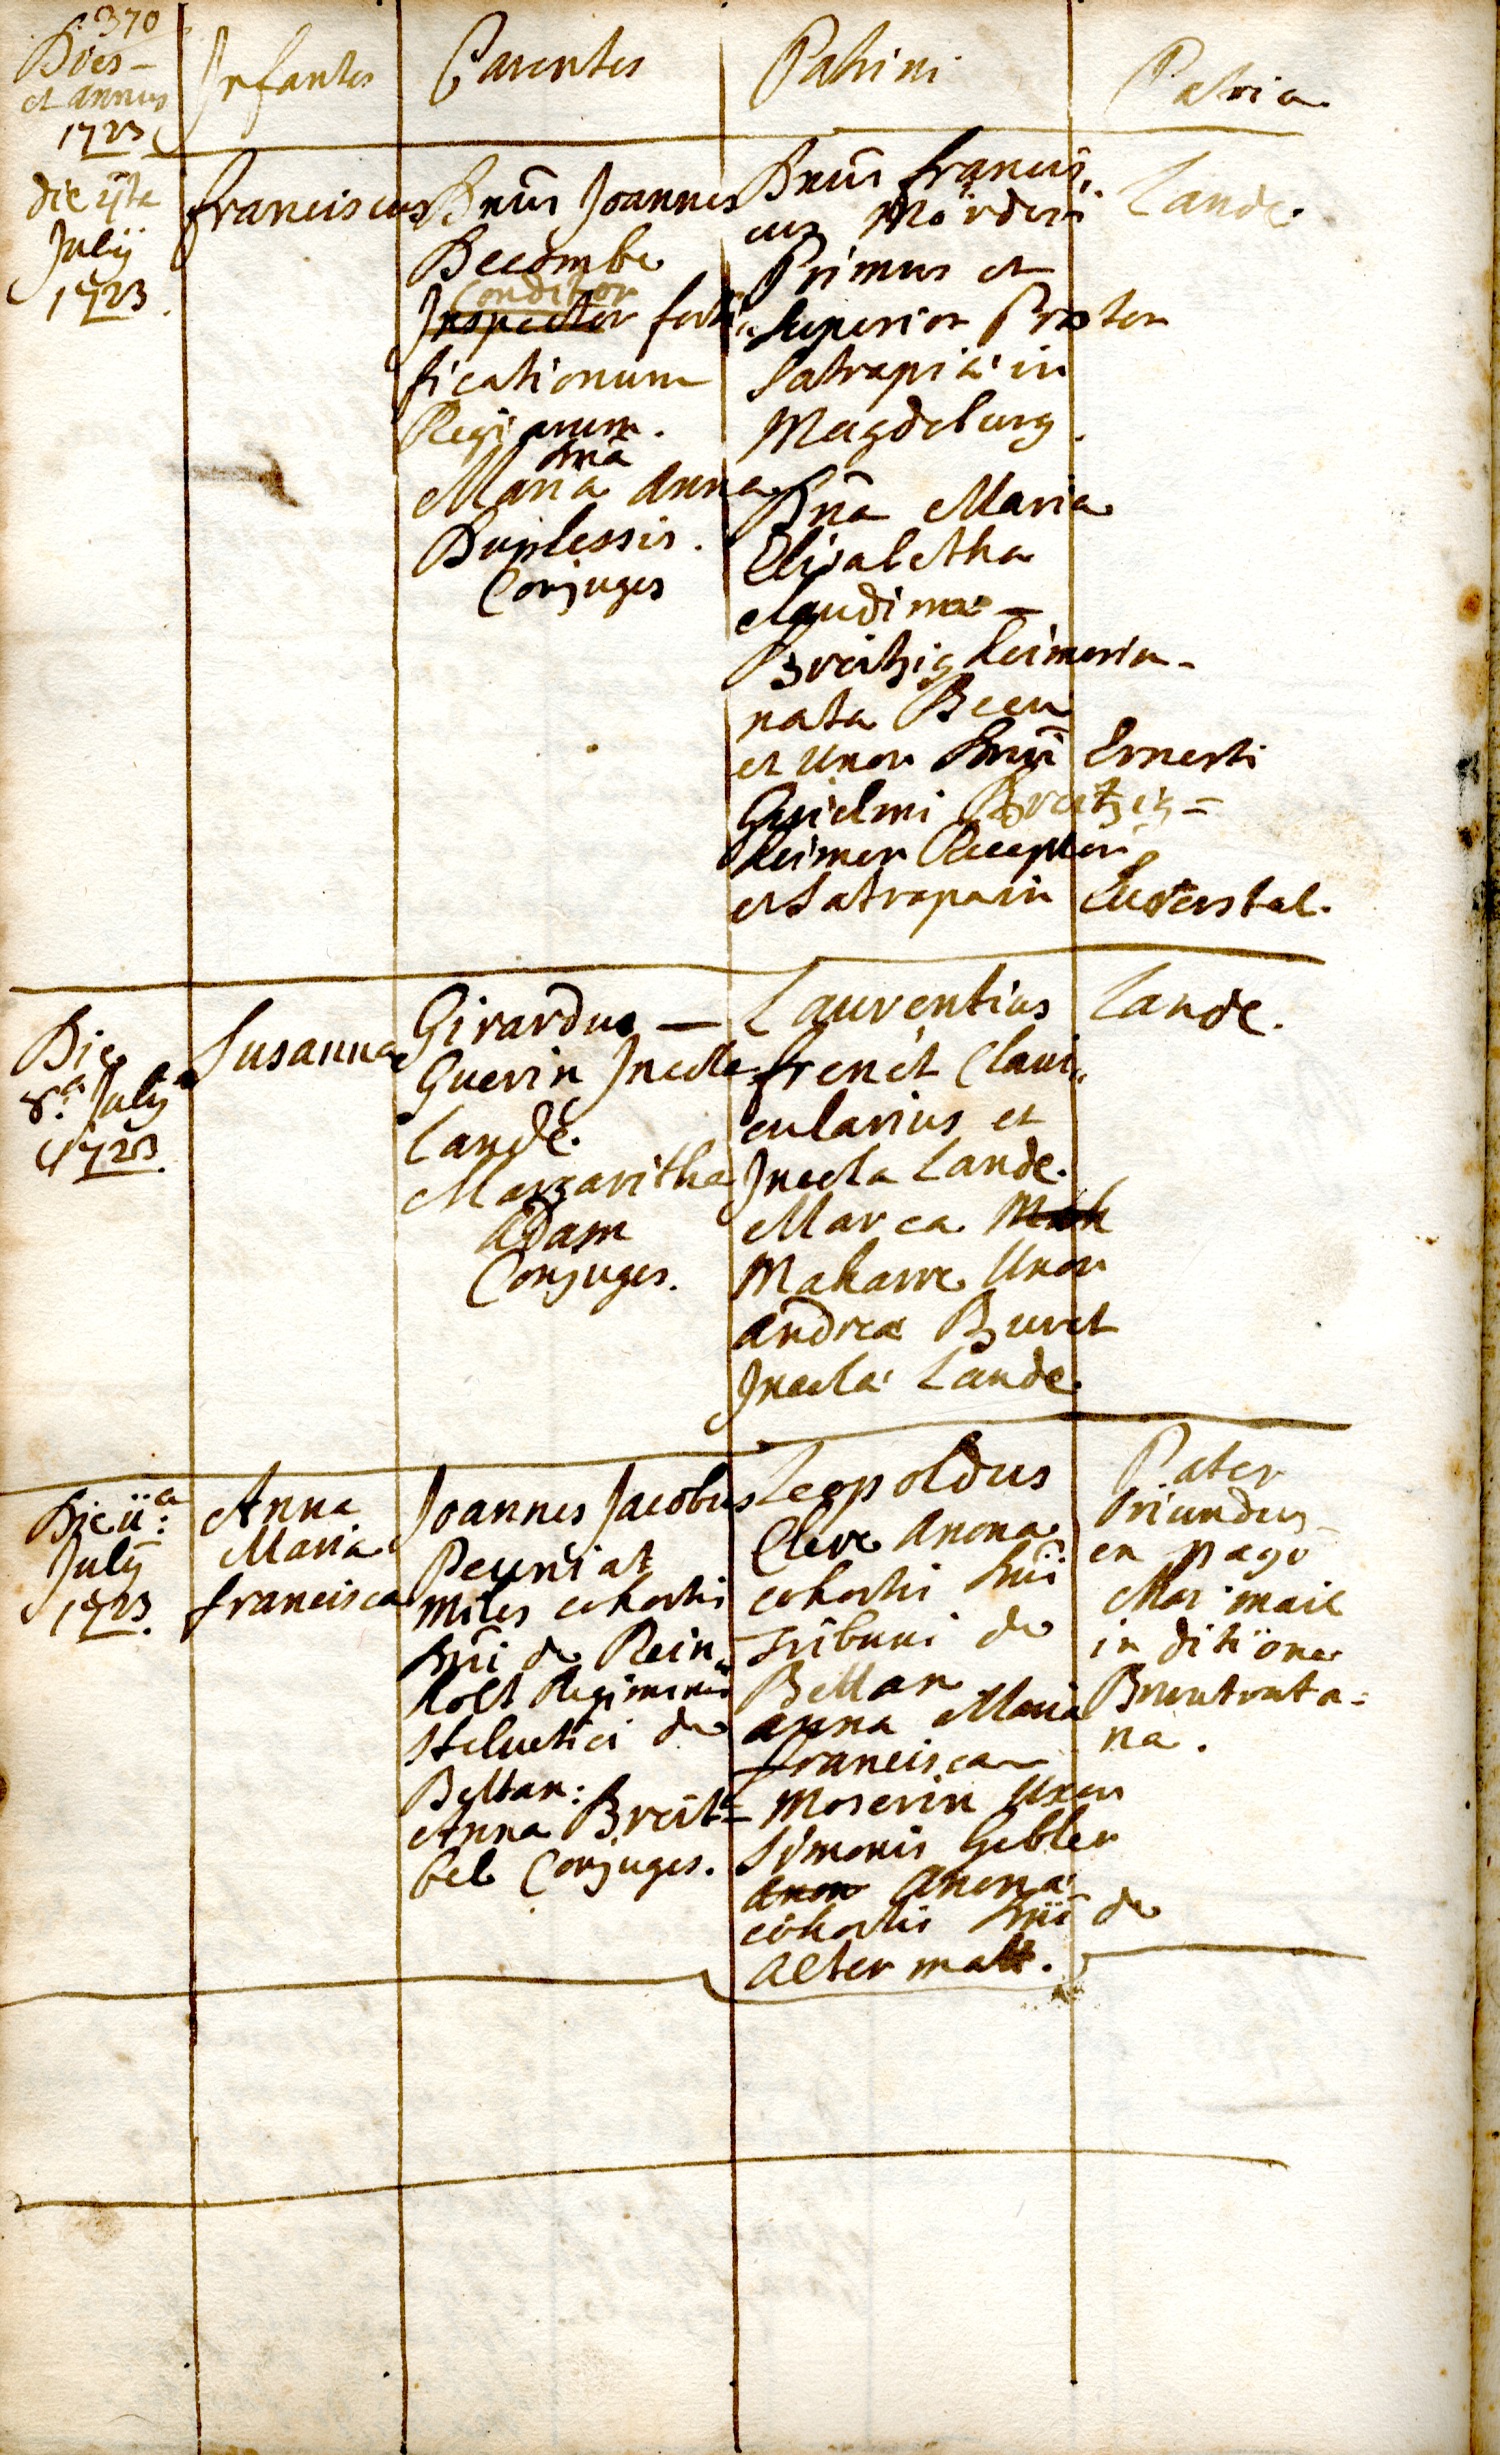 370
Dies
et annus
1723
Infantes
Parentes
Patrini
Patria
die 4ta
Julÿ
1723.
franciscus
Dnūs Joannes
Decombe
Conditor
Inspector forti„
ficationum
Regiarum.
Dnā
Maria Anna
Duplessis.
Conjuges
Dnūs francis„
cus
Primus et
Superior Prætor
Satrapiæ in
Magdeburg.
Dnā Maria
Elisabetha
claudina
nata
et Uxor Dnīi Ernesti
Guielmi
Receptor
et Satrapa in
Lande.
Die
8.a Julÿ
1723.
Susanna
Girardus —
Guerin Incola
Lande.
Margaritha
Adam
Conjuges.
Laurentius
frenet Clavi„
cularius et
Incola Lande.
Marca
Maharre Uxor
Andreæ Buret
Incola Lande.
Lande.
Die ii:a
Julÿ
1723.
Anna
Maria
francisca
Joannes Jacobus
Peuniat
Miles cohortis
Dnīi de Rein„
holt Regiminis
Helvetici de
Beltan:
Anna Breit=
bel Conjuges.
Leopoldus
Clere Anona
cohortis Dnīi
Tribuni de
Bettan
Anna Maria
francisca
Moserin Uxor
Simonis Gebler
Anon Anona
cohortis Dnīi de
Altermatt.
Pater
Oriundus
ex pago
in ditione
Bruntruta=
na.